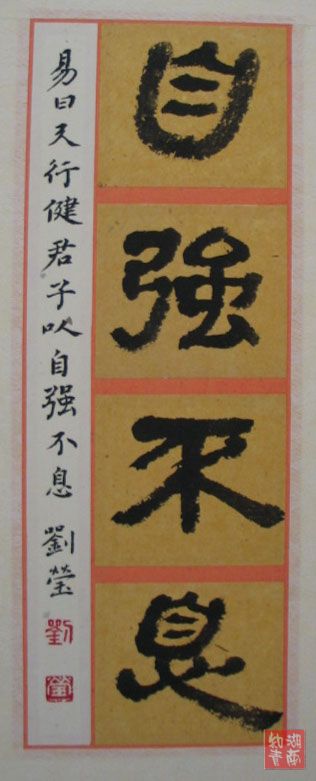 自強不息
易曰天行健君子以自強不息 劉瑩
劉
瑩
湖南